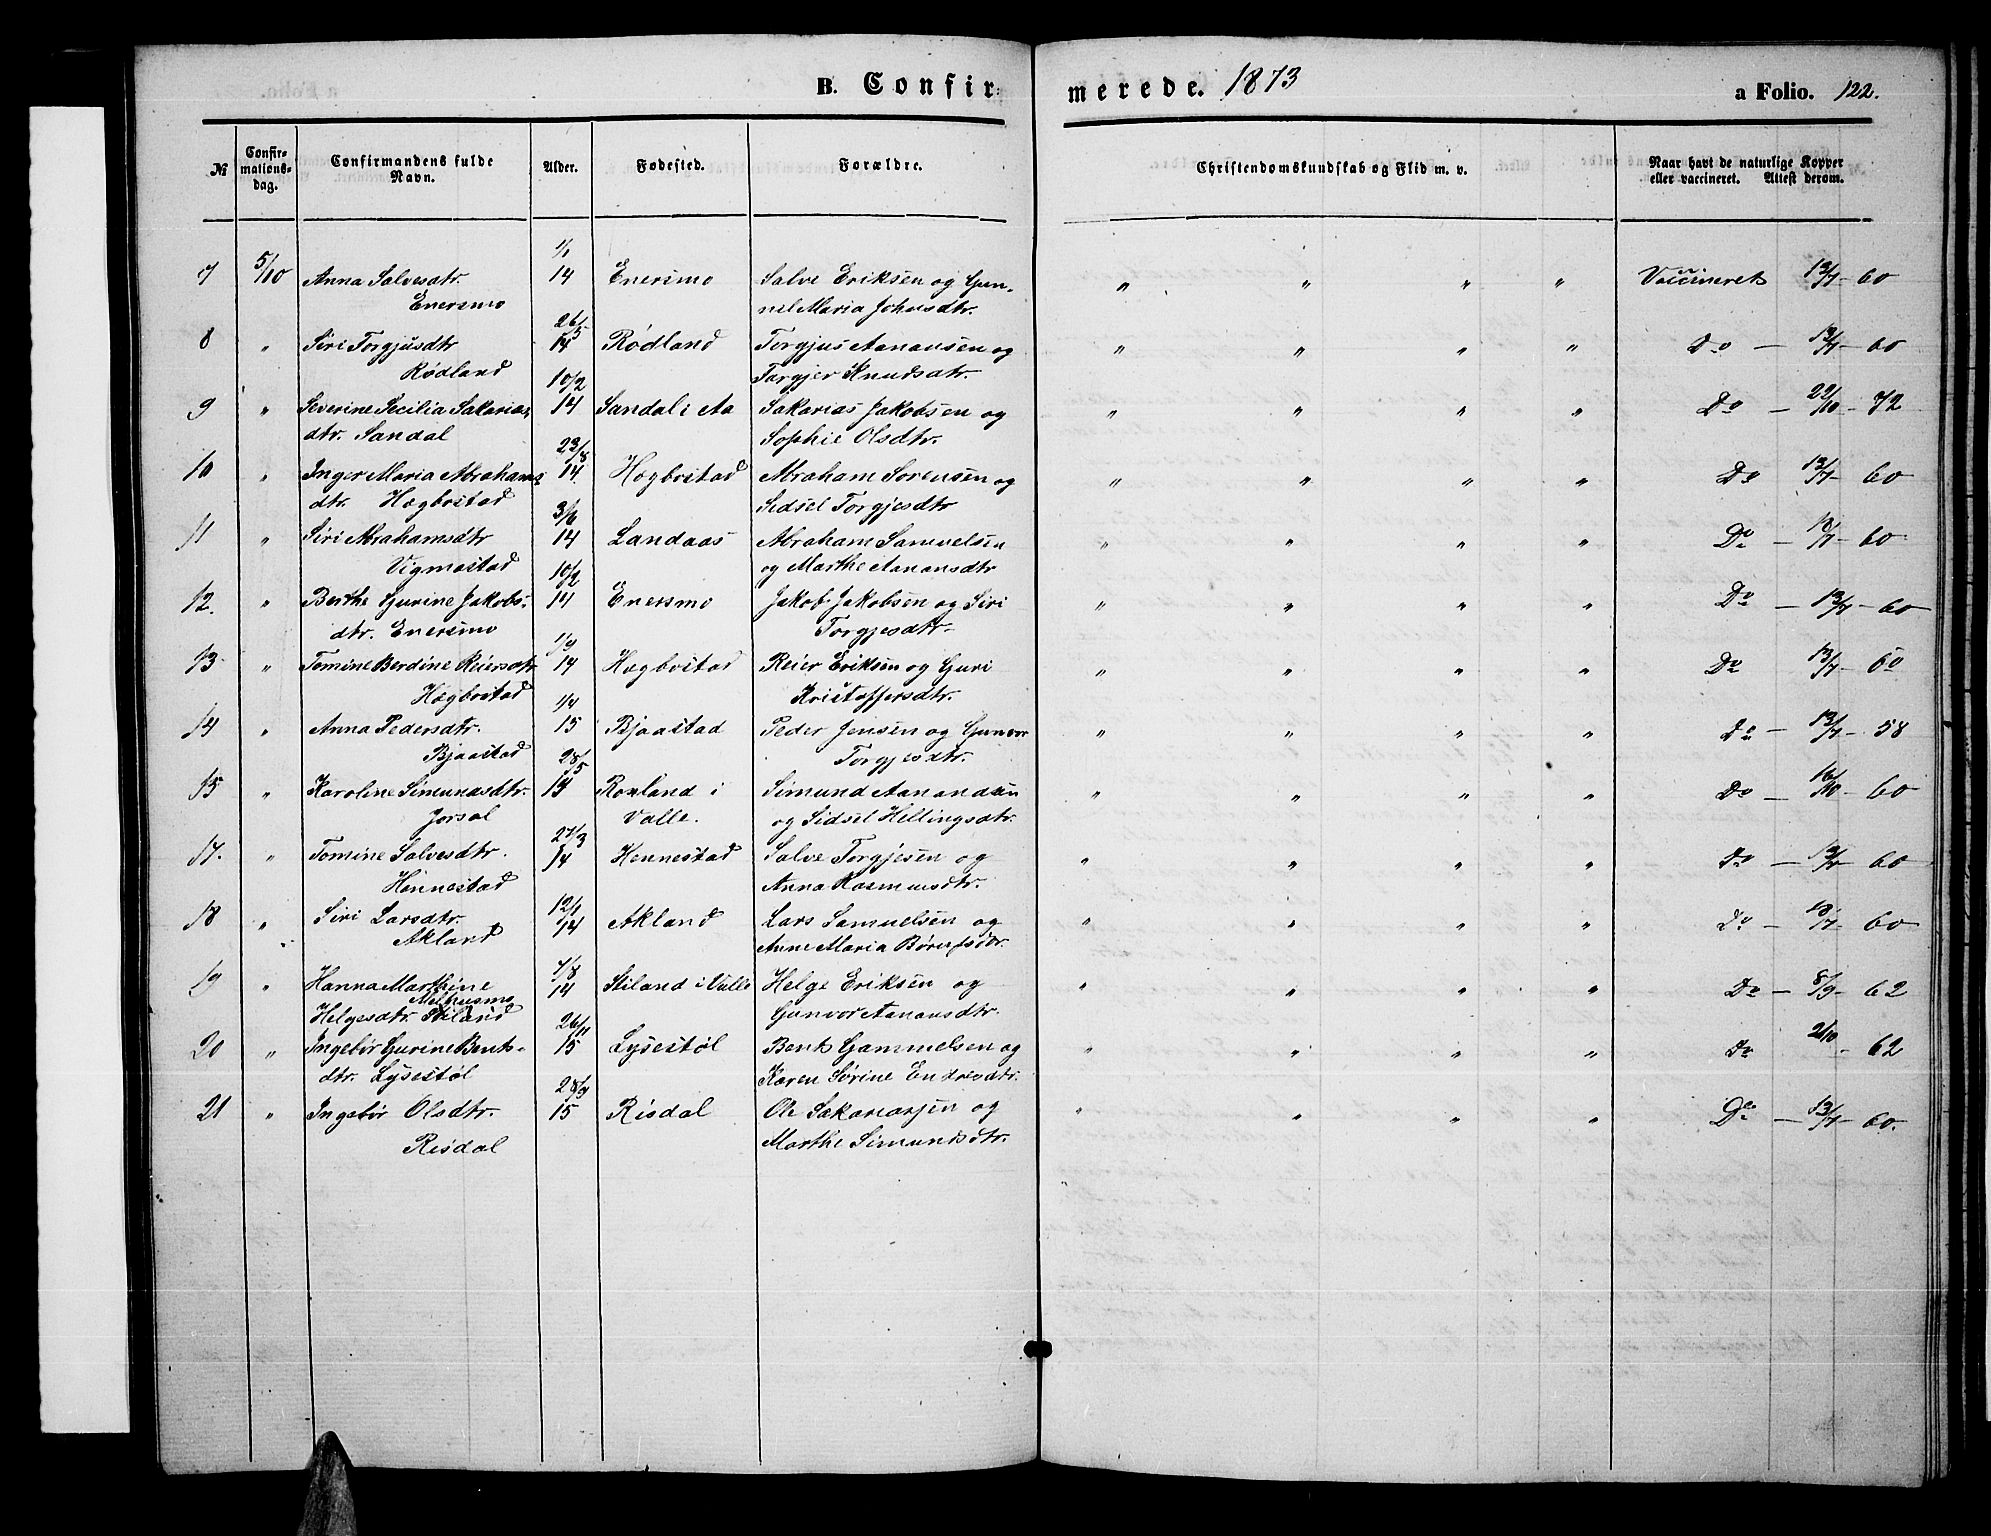 B. Confir=
merede. 1873
a Folio. 122.
№
Confir-
mations-
dag.
Confirmandens fulde
Navn.
Alder.
Fødested.
Forældre.
Christendomskundskab og Flid m. v.
Naar havt de naturlige Kopper
eller vaccineret. Attest derom.
1/1
7 5/10 Anna Salvesdtr. 14 Enersmo Salve Eriksen og Gun- " " " " Vaccineret 13/7 - 60
Enersmo nil Maria Johnsdtr.
26/5
8 " Siri Torgjusdtr 14 Rødland Torgjus Aanansen og " " " " Do — 13/7 - 60
Rødland Torgjer Knudsdtr.
10/2
9 " Severine Secilia Sakarias 14 Sandal i Aa Sakarias Jakobsen og " " " " Do — 22/10 - 72
dtr. Sandal Sophie Olsdtr.
23/8
10 " Inger Maria Abrahams 14. Hægbostad Abraham Sørensen og " " " " Do — 13/7 - 60
dtr. Hægbostad Sidsel Torgjesdtr
3/6
11 " Siri Abrahamsdtr 14 Landaas Abraham Samuelsen " " " " Do — 13/7 - 60
Vigmostad og Marthe Aanansdtr
10/2
12. " Berthe Gurine Jakobs- 14 Enersmo Jakob Jakobsen og Siri " " " " Do — 13/7 - 60
dtr. Enersmo Torgjesdtr-
1/9
13 " Tomine Berdine Reiersdtr 14 Hægbostad Reier Eriksen og Guri " " " " Do — 13/7 - 60
Hægbostad Kristoffersdtr.
1/4
14 " Anna Pedersdtr. 15 Bjaastad Peder Jensen og Gunvor " " " " Do — 13/7 - 58
Bjaastad Torgjesdtr.
28/5
15 " Karoline Simundsdtr. Roxland i Simund Aanandsen " " " " Do — 16/10 - 60
Jorsal Valle. og Sidsel Hellingsdtr.
27/3
17. " Tomine Salvesdtr. 14 Hennestad Salve Torgjesen og " " " " Do — 13/7 - 60
Hennestad Anna Rasmusdtr.
12/1
18 " Siri Larsdtr. 14 Akland Lars Samuelsen og " " " " Do — 13/7 - 60
Akland Anne Maria
7/8
19 " Hanna Marthine 14 Stiland i Valle Helge Eriksen og " " " " Do — 8/9 - 62
Helgesdtr. Stiland Gunvor Aanansdtr.
26/11
20 " Ingebør Gurine Bents- 15 Lysestøl Bent Gammelsen og " " " " Do 2/10 - 62
dtr. Lysestøl Karen Sørine Endresdtr.
28/9
21 " Ingebør Olsdtr. 15 Risdal Ole Sakariasen og " " " " Do — 13/7 - 60.
Risdal Marthe Simundsdtr.